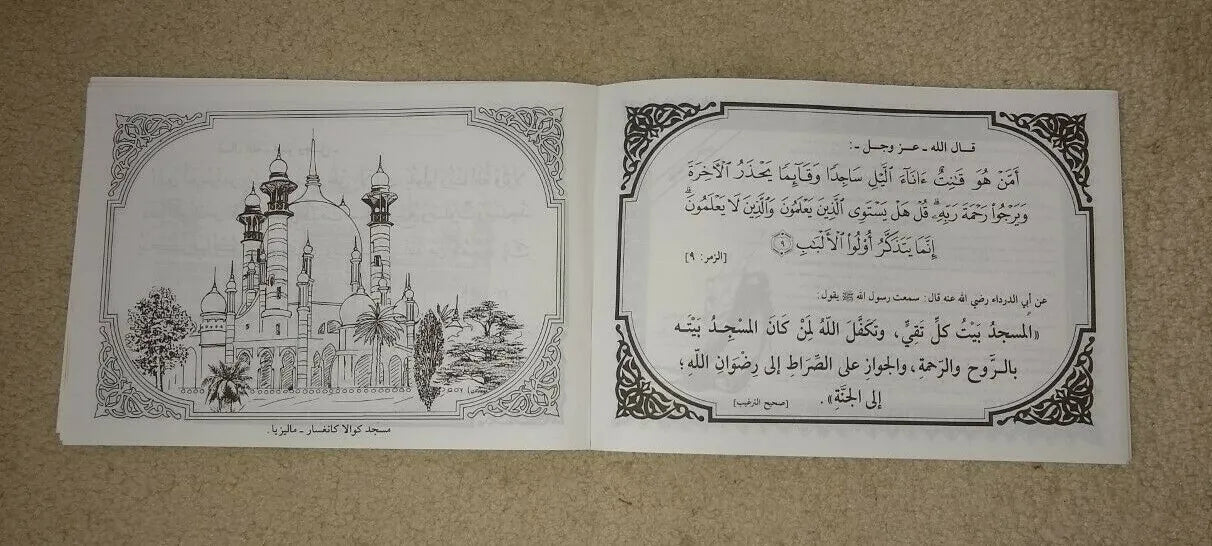 قال الله ـ عز وجل ـ:
أَمَّنْ هُوَ قَـٰنِتٌ ءَانَآءَ ٱلَّيْلِ سَاجِدًا وَقَآئِمًا يَحْذَرُ ٱلْأَخِرَةَ
وَيَرْجُوا۟ رَحْمَةَ رَبِّهِۦۗ قُلْ هَلْ يَسْتَوِى ٱلَّذِينَ يَعْلَمُونَ وَٱلَّذِينَ لَا يَعْلَمُونَۗ
إِنَّمَا يَتَذَكَّرُ أُو۟لُوا۟ ٱلْأَلْبَـٰبِ ٩
[الزمر: ٩]
عن أبي الدرداء رضي الله عنه قال: سمعت رسول الله ﷺ يقول:
«المسجدُ بَيْتُ كلِّ تَقِيٍّ، وتَكَفَّلَ اللهُ لِمَنْ كَانَ المَسْجِدُ بَيْتَـه
بالـرَّوحِ والرَّحمةِ، والجَوازِ على الصِّرَاطِ إلى رِضْوَانِ اللهِ؛
إلى الجَنَّةِ». [صحيح الترغيب]
مسجد كوالا كانغسار ـ ماليزيا.